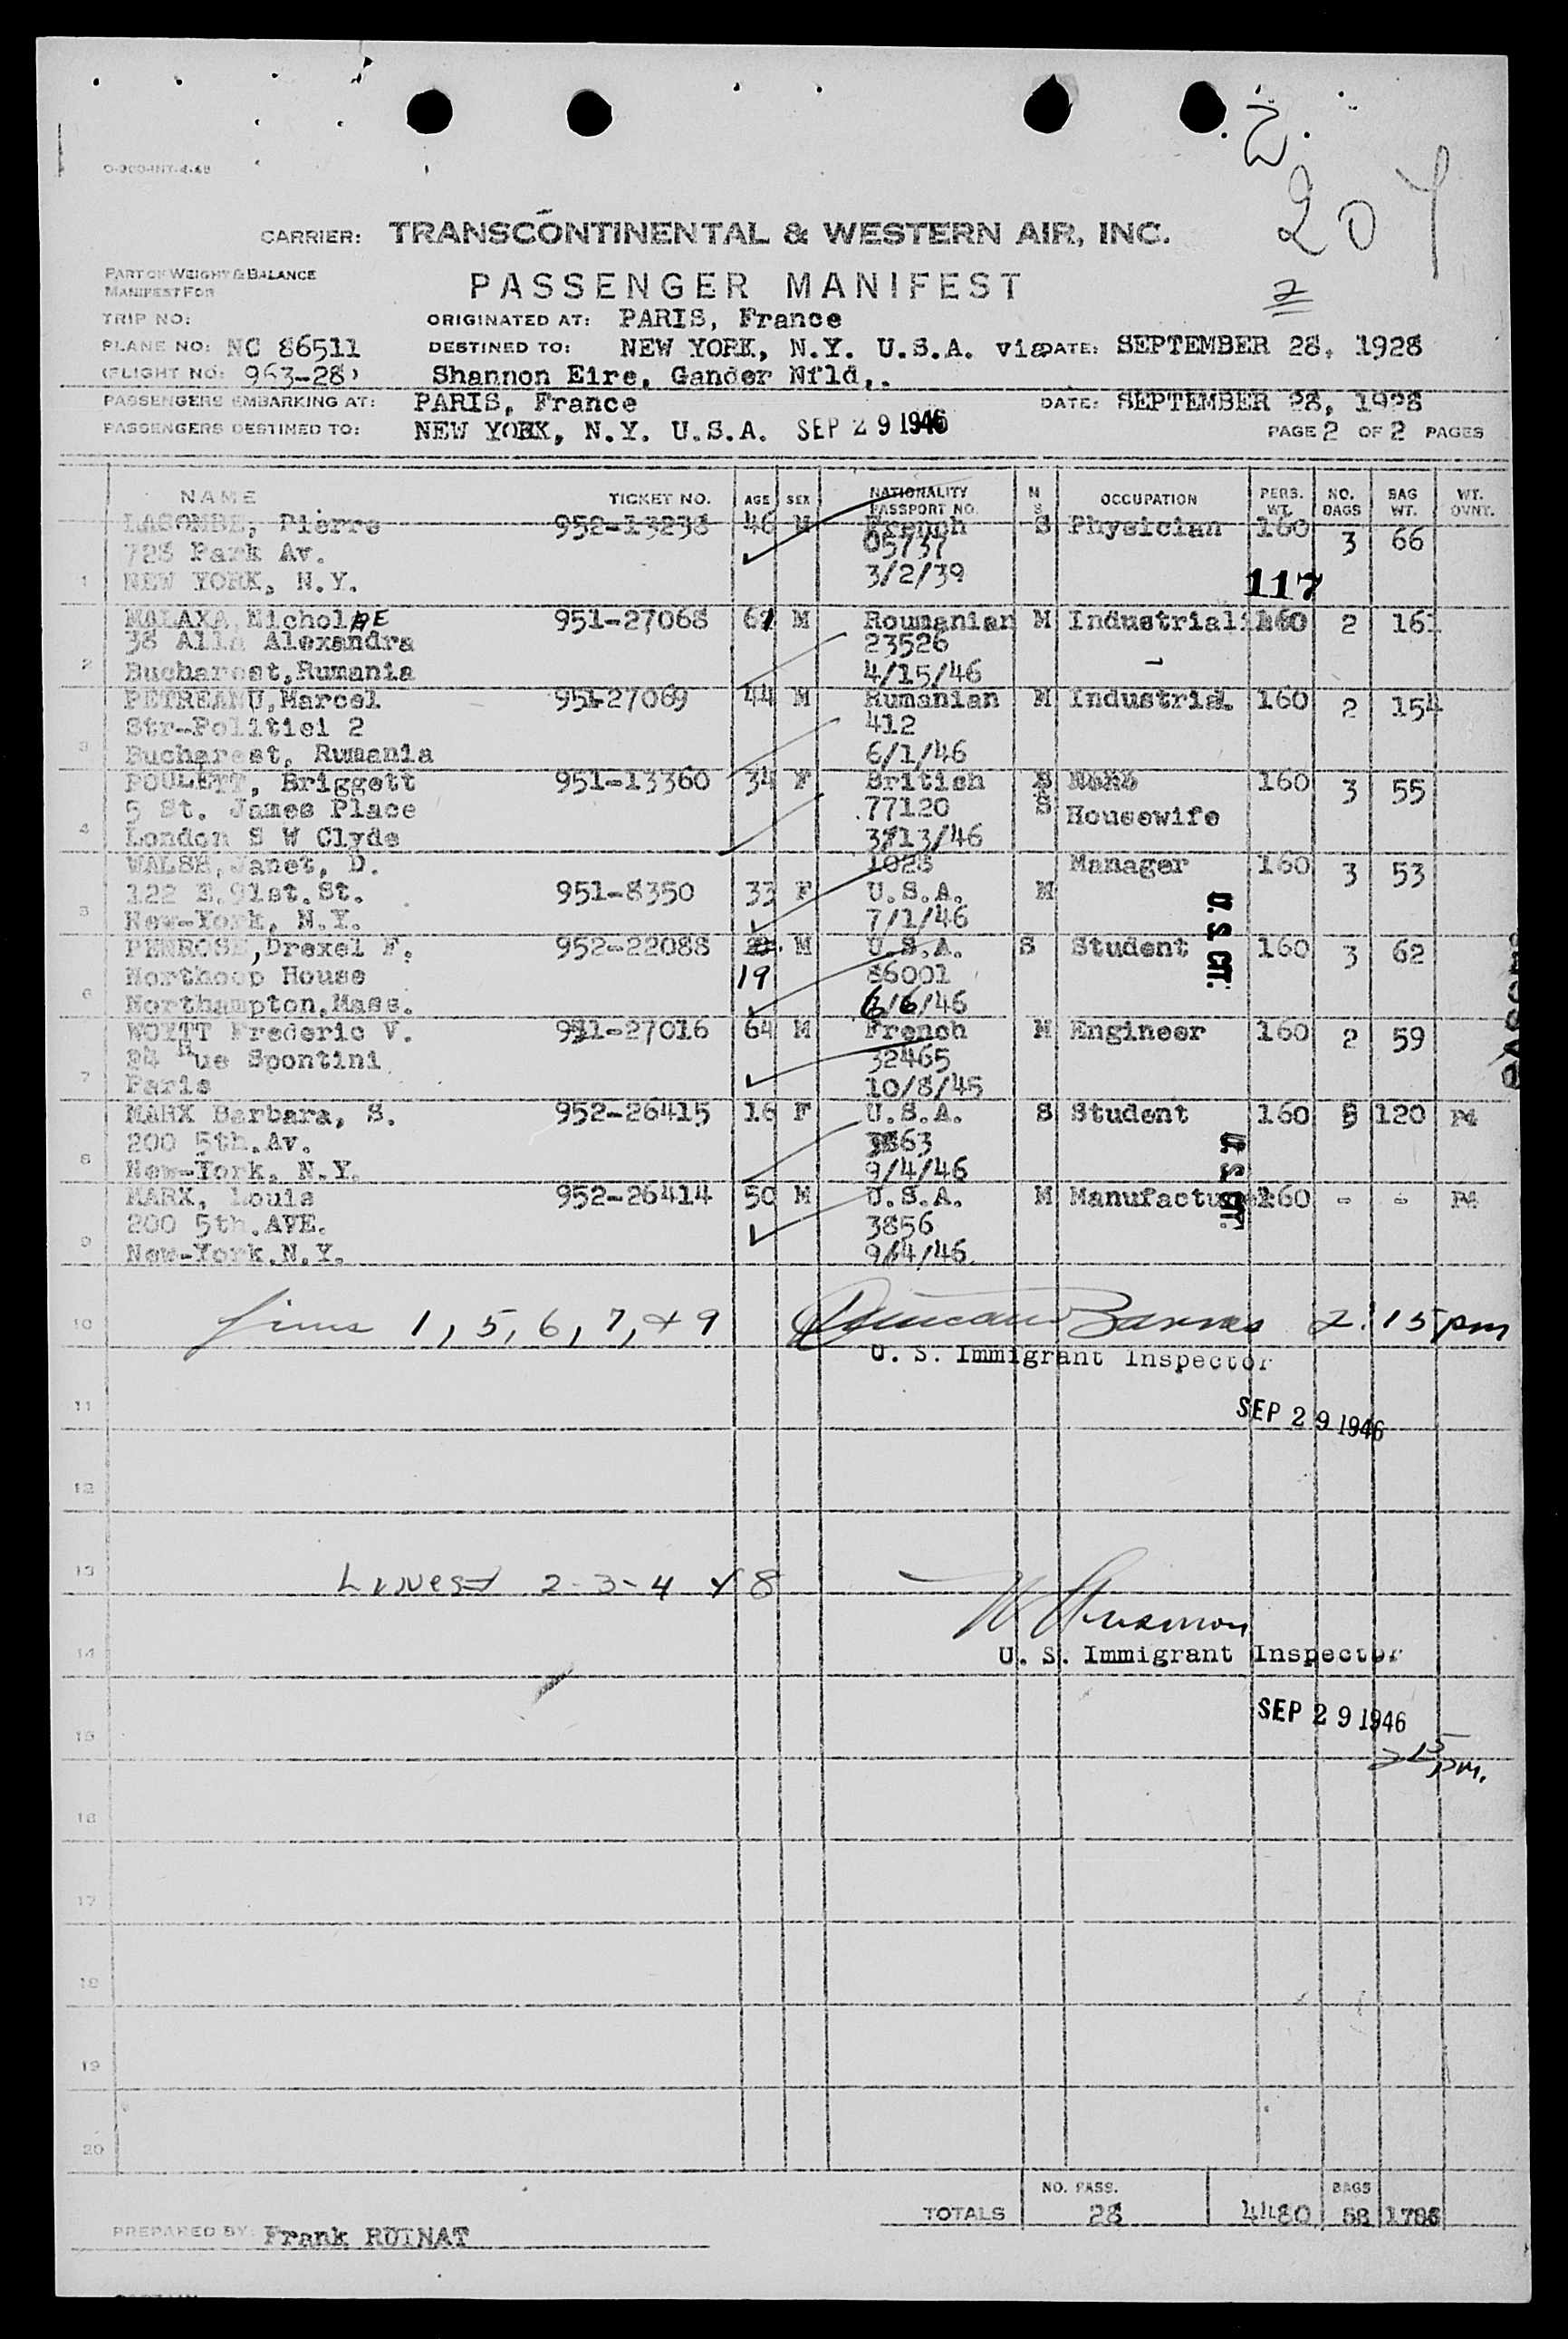 O-300-INT-4-46
2
204
CARRIER: TRANSCONTINENTAL & WESTERN AIR, INC.
PART OF WEIGHT & BALANCE
MANIFEST FOR
PASSENGER MANIFEST
2
TRIP NO: ORIGINATED AT: PARIS, France
PLANE NO: NC 86511 DESTINED TO: NEW YORK, N.Y. U.S.A. via DATE: SEPTEMBER 28, 1928
(FLIGHT NO: 963-28) Shannon Eire, Gander Nfld,.
PASSENGERS EMBARKING AT: PARIS, France DATE: SEPTEMBER 28, 1928
PASSENGERS DESTINED TO: NEW YORK, N.Y. U.S.A. SEP 29 1946 PAGE 2 OF 2 PAGES
NAME TICKET NO. AGE SEX NATIONALITY PASSPORT NO. M S OCCUPATION PERS. WT. NO. BAGS BAG WT. WT. OVNT.
LACOMBE, Pierre 952-13238 46 M French S Physician 160 3 66
728 Park Av. 05737
1 NEW YORK, N.Y. 3/2/39 117
MALAXA, Nicholae 951-27068 61 M Roumanian M Industrial 160 2 161
38 Alla Alexandra 23526
2 Bucharest,Rumania 4/15/46
PETREANU,Marcel 951-27069 44 M Rumanian M Industrial. 160 2 154
Str-Politiei 2 412
3 Bucharest, Rumania 6/1/46
POULETT, Briggett 951-13360 34 F British S 160 3 55
5 St. James Place 77120 S Housewife
4 London S W Clyde 3/13/46
WALSH,Janet, D. 1028 Manager 160 3 53
122 E.91st.St. 951-8350 33 F U.S.A. M
5 New-York, N.Y. 7/1/46 U.S. CIT.
PENROSE,Drexel F. 952-22088 M U.S.A. S Student 160 3 62
Northoop House 19 86001
6 Northampton,Mass. 6/6/46
WOITT Frederic V. 951-27016 64 M French M Engineer 160 2 59
24 Rue Spontini 32465
7 Paris 10/8/45
MARX Barbara, S. 952-26415 16 F U.S.A. S Student 160 5 120 Pd
200 5th.Av. 3863
8 New-York, N.Y. 9/4/46 U.S. CIT.
MARX, Louis 952-26414 50 M U.S.A. M Manufacturer 160 - - Pd
200 5th.AVE. 3856
9 New-York.N.Y. 9/4/46
10 Lines 1, 5, 6, 7, & 9 Duncan Barnes 2:15 pm
U. S. Immigrant Inspector
11 SEP 29 1946
12
13 Lines 2-3-4 & 8
14 U. S. Immigrant Inspector
15 SEP 29 1946
2 15 pm.
16
17
18
19
20
NO. PASS. BAGS
TOTALS 28 4480 58 1786
PREPARED BY: Frank RUINAT